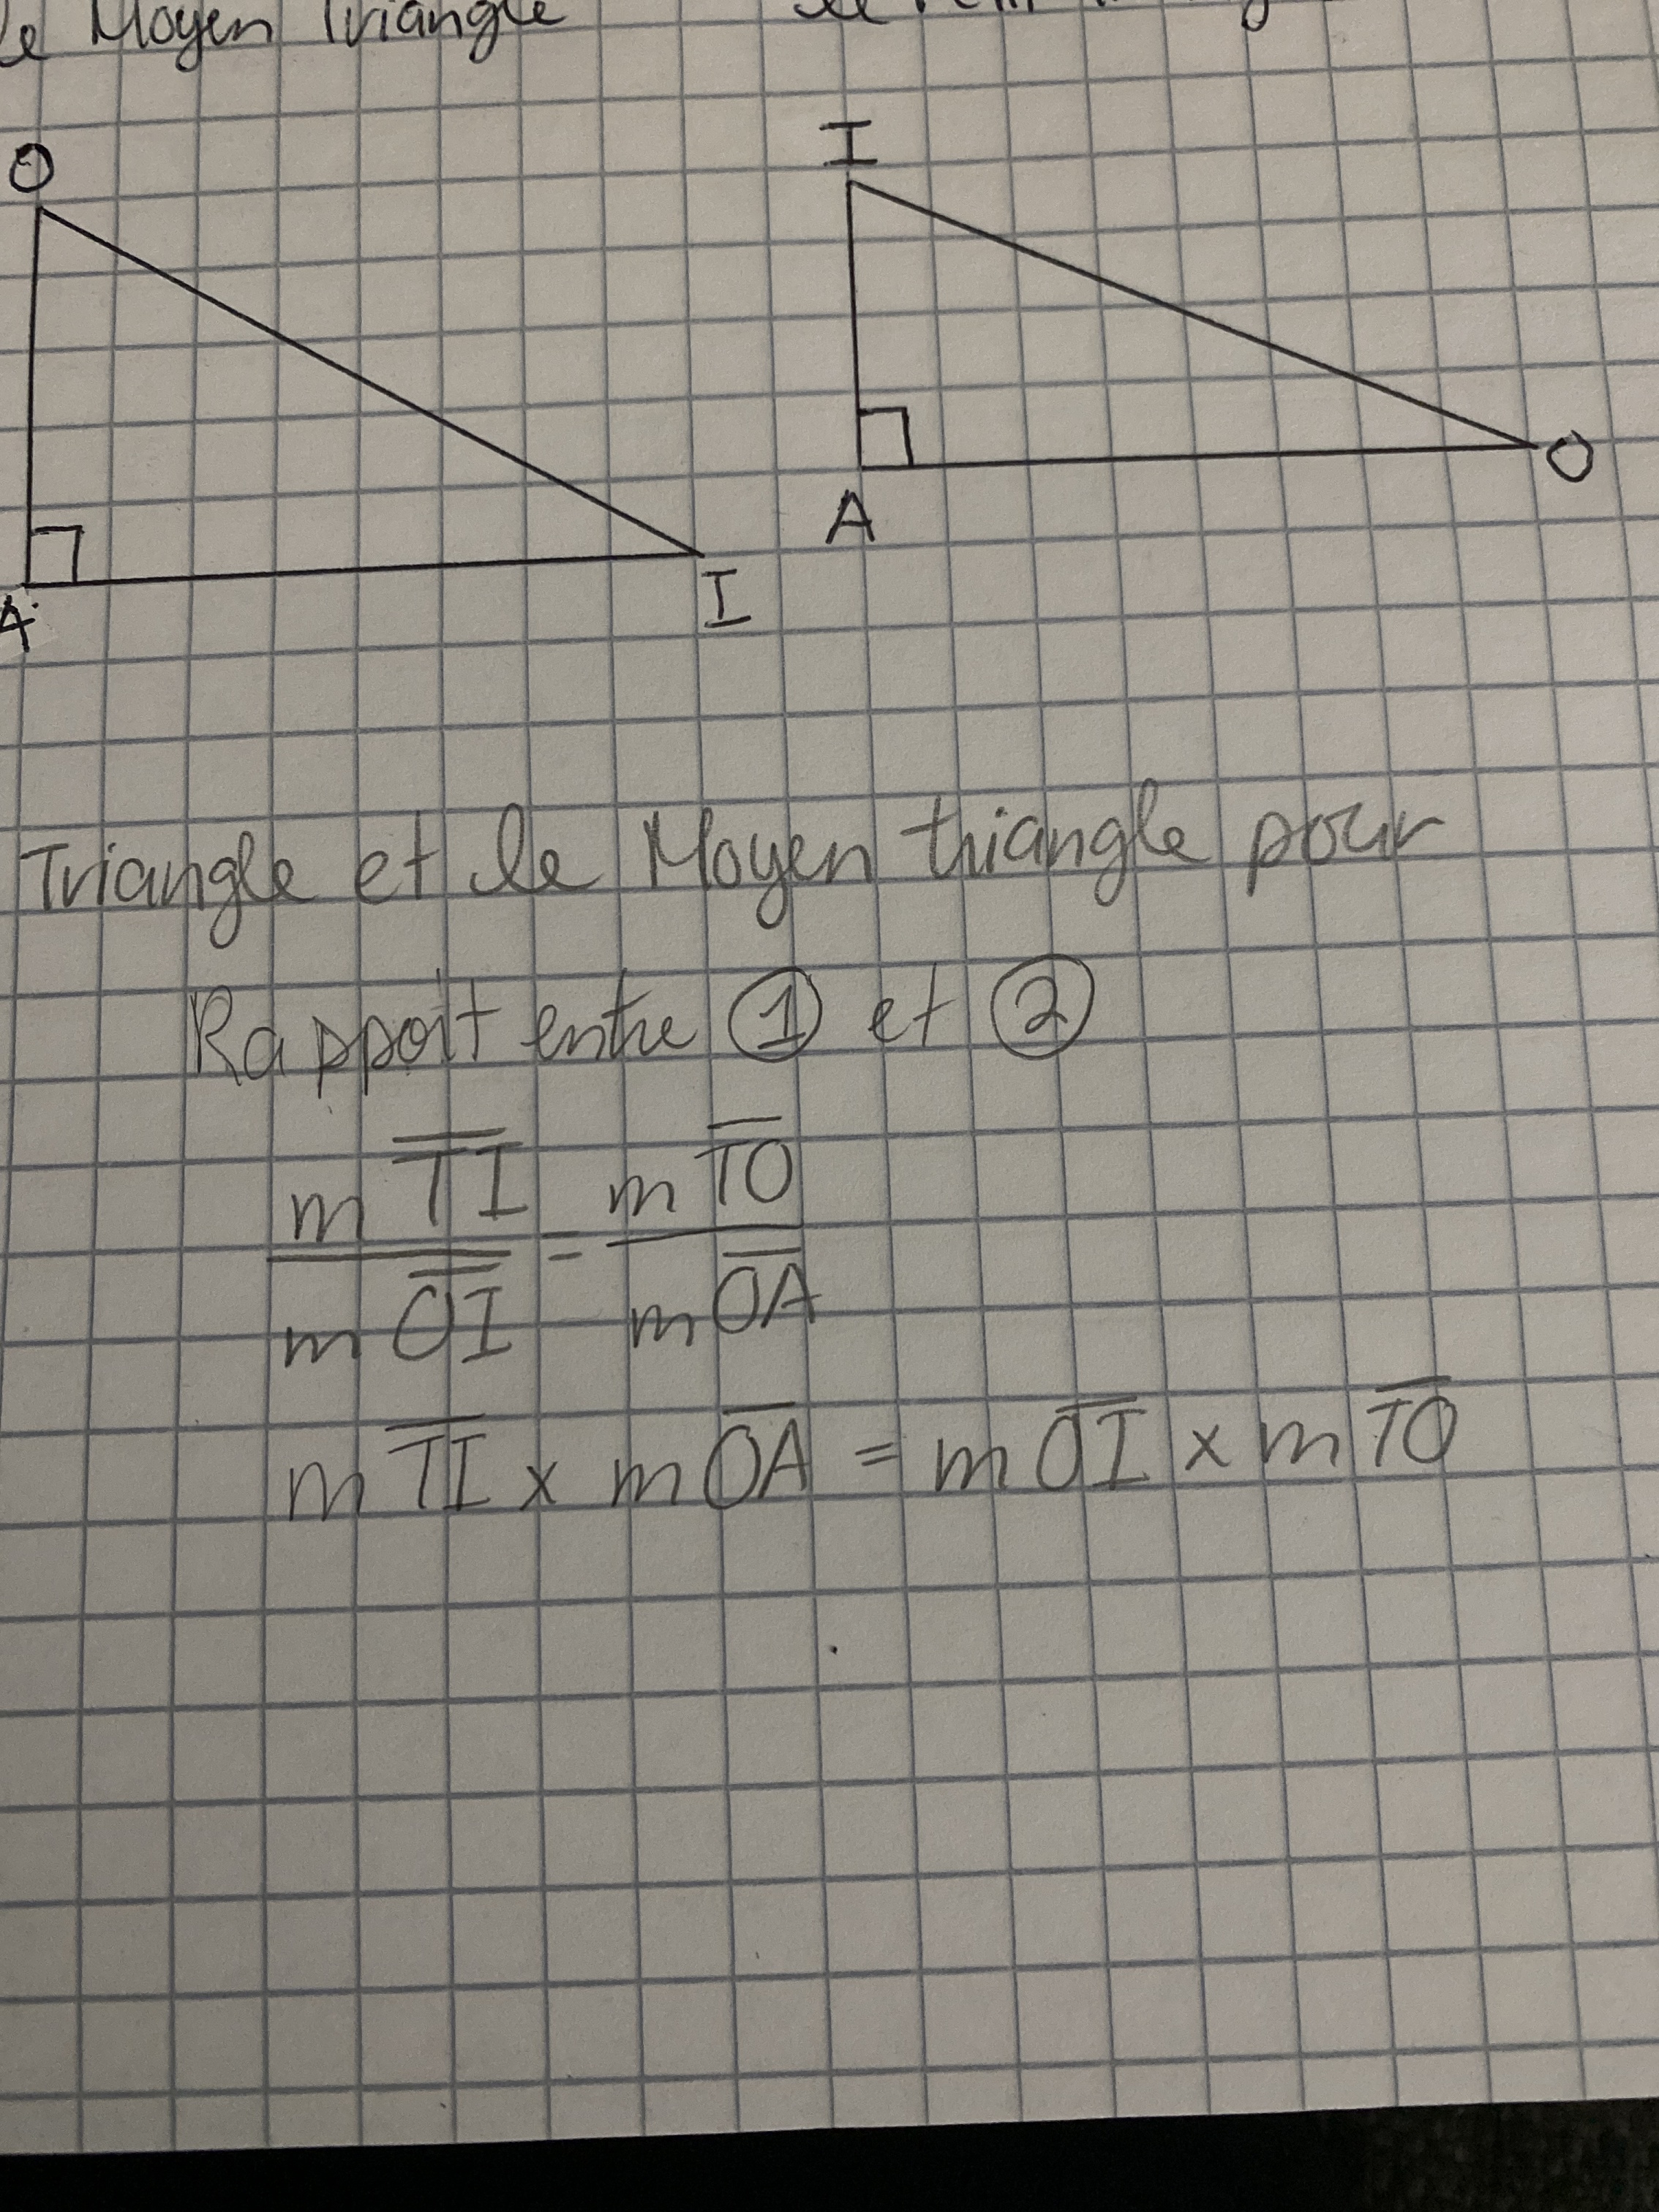 Moyen Triangle
O
I
A
I
A
O
Triangle et le Moyen triangle pour
Rapport entre ① et ②
m TI = m TO
m OI m OA
m TI x m OA = m OI x m TO